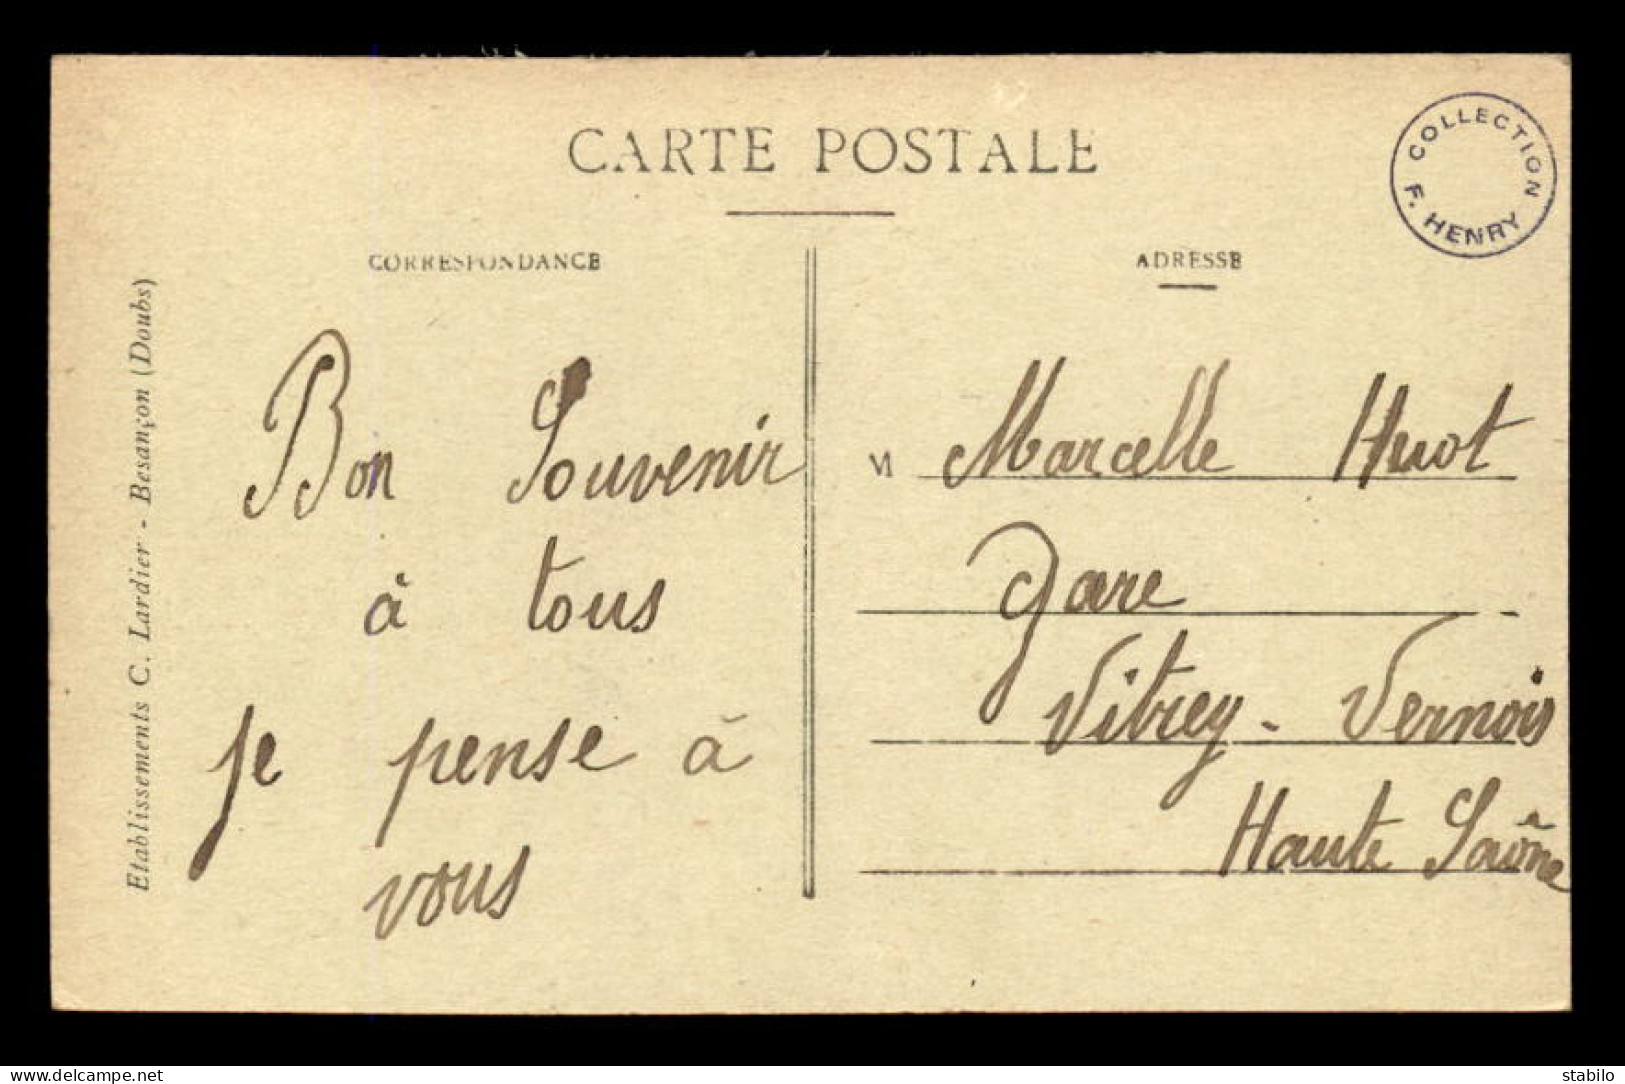 CARTE POSTALE
COLLECTION
F. HENRY
CORRESPONDANCE
ADRESSE
Etablissements C. Lardier - Besançon (Doubs)
Bon Souvenir
à tous
je pense à
vous
M Marcelle Huot
gare
Vitrey - Vernois
Haute Saône
www.delcampe.net
stabilo